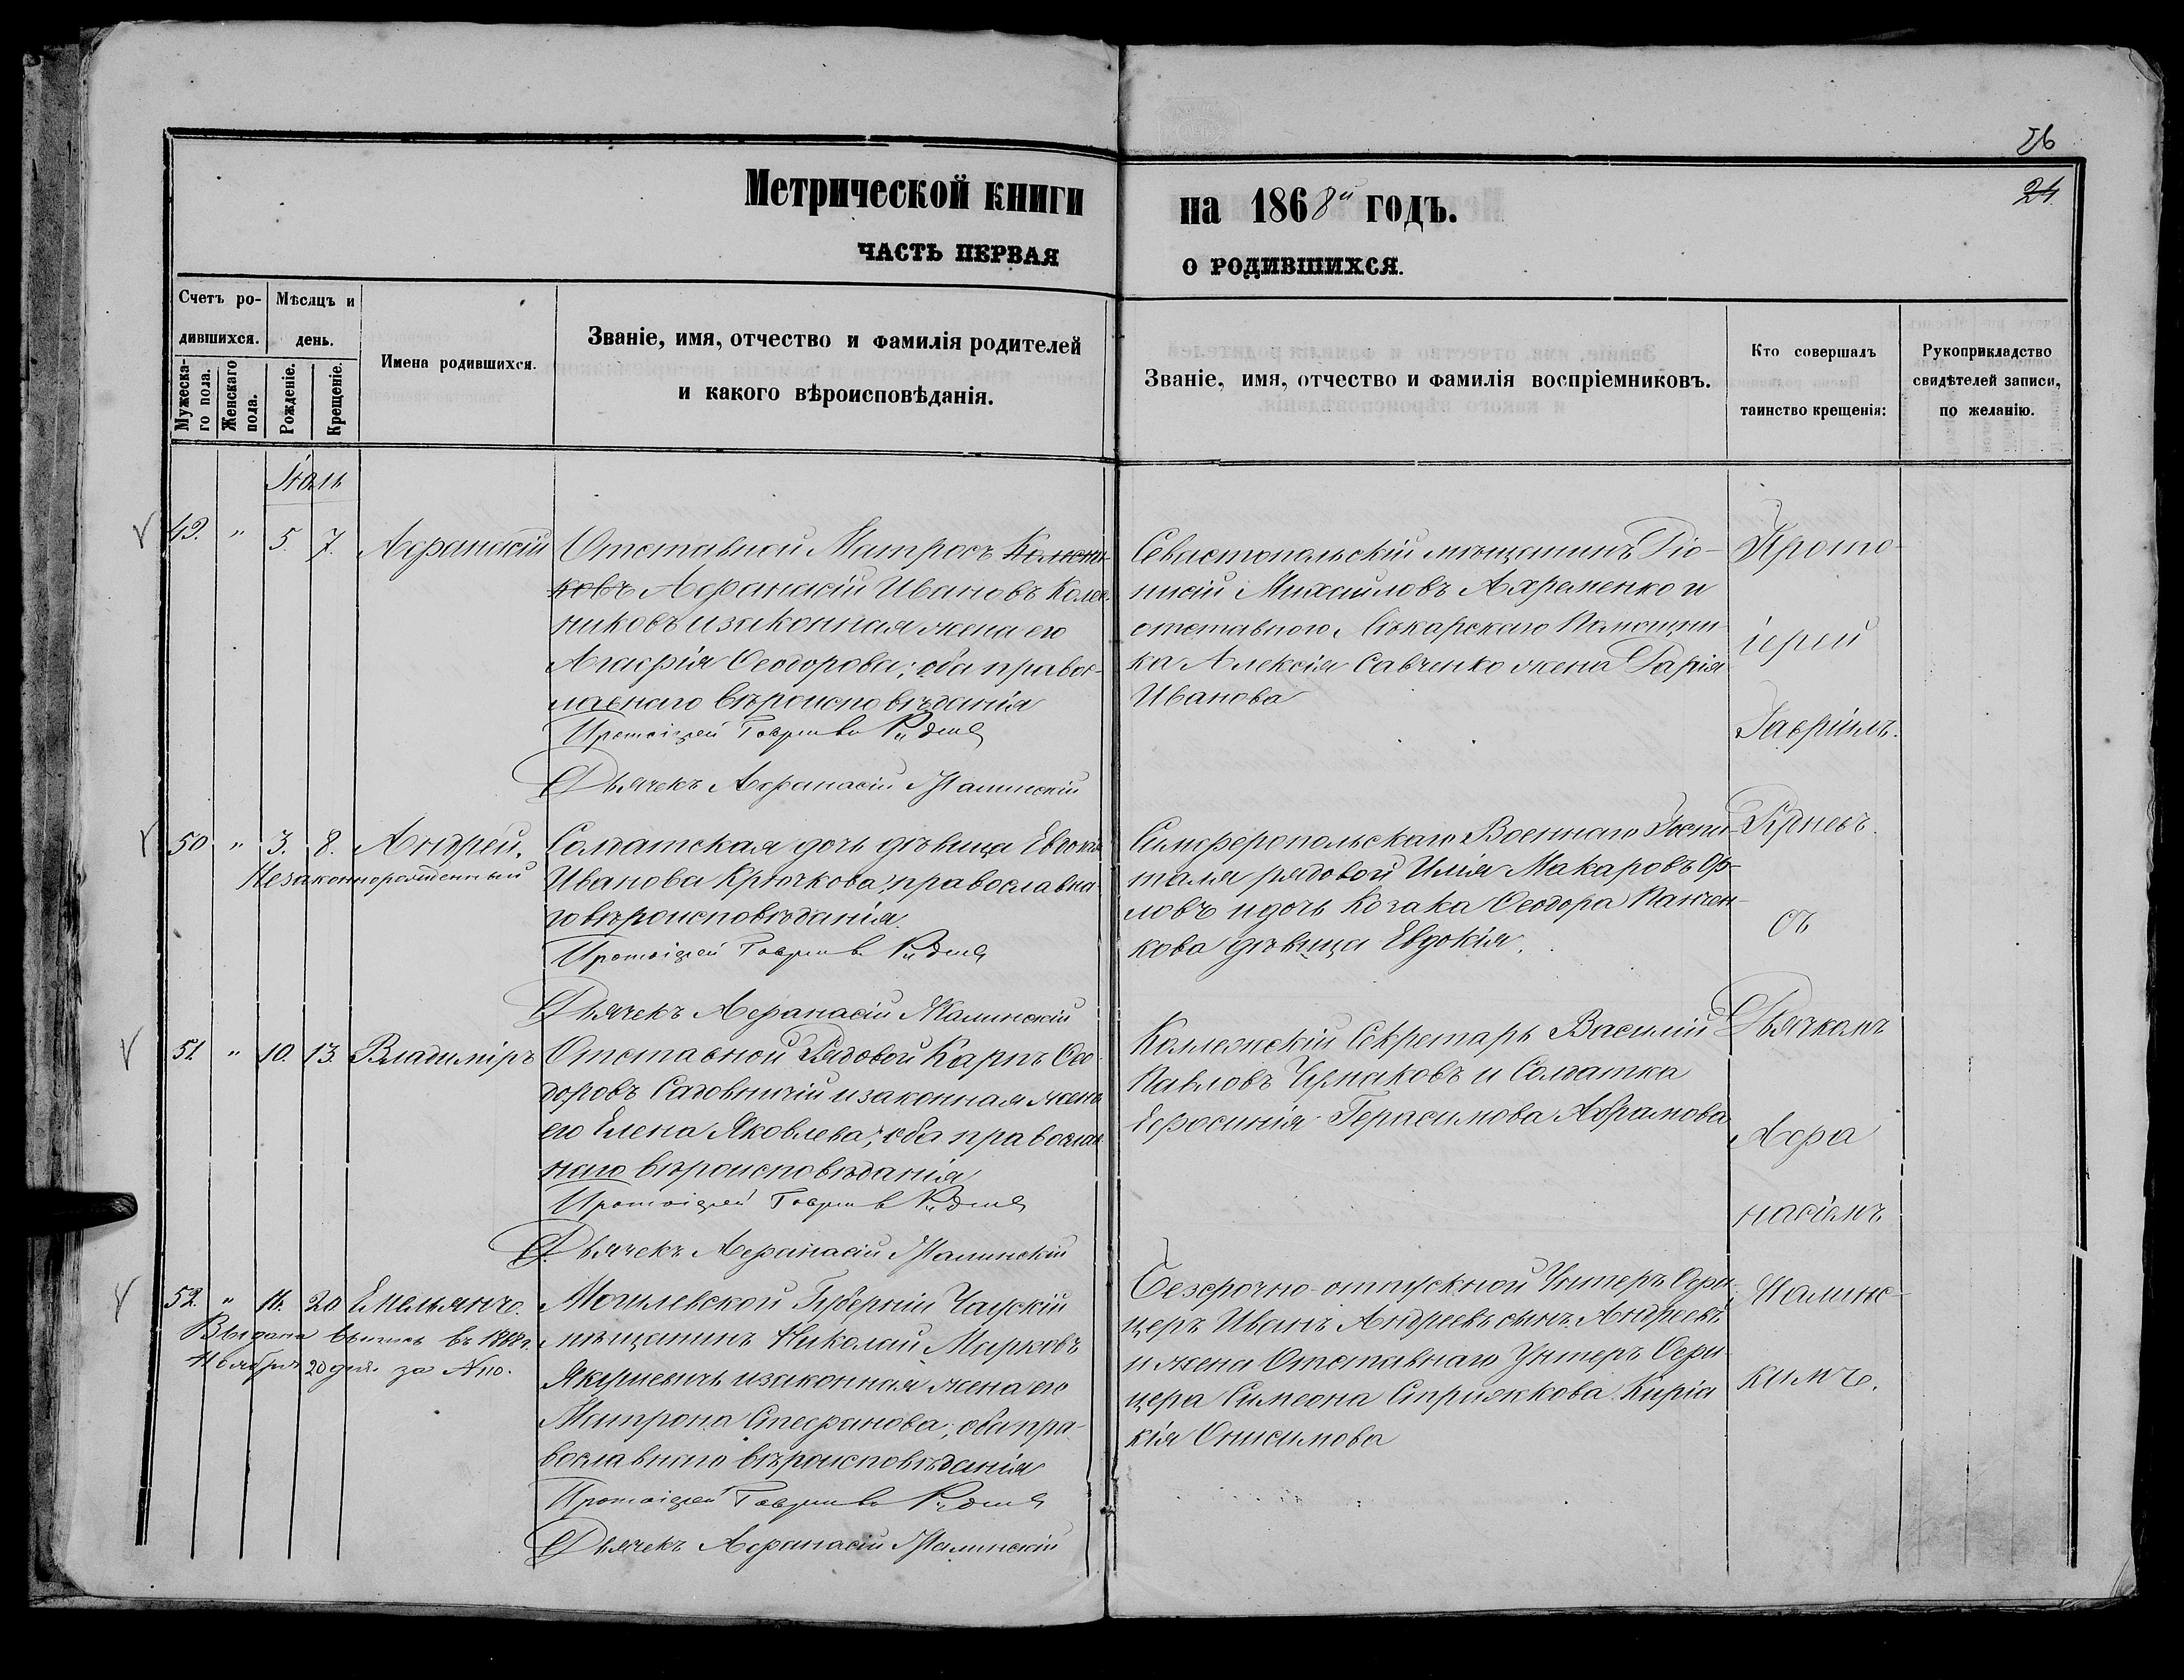 26
24.
Метрической книги на 1868й годъ.
ЧАСТЬ ПЕРВАЯ О РОДИВШИХСЯ.
Счетъ ро-
дившихся.
Мѣсяцъ и
день.
Мужеска-
го пола.
Женскаго
пола.
Рожденіе.
Крещеніе.
Имена родившихся.
Званіе, имя, отчество и фамилія родителей
и какого вѣроисповѣданія.
Званіе, имя, отчество и фамилія воспріемниковъ.
Кто совершалъ
таинство крещенія:
Рукоприкладство
свидѣтелей записи,
по желанію.
49. " 5. 7. Афанасій
Отставной Матросъ Колесни-
ковъ Афанасій Ивановъ Колес-
никовъ и законная жена его
Агафія Ѳеодорова; оба правос-
лавнаго вѣроисповѣданія
Протоіерей Гавріилъ
Дьячекъ Афанасій Малинскій
Севастопольскій мѣщанинъ Діо-
нисій Михаиловъ Ахременко и
отставного Лѣкарскаго Помощни-
ка Алексія Савченко жена Дарія
Иванова
50 " 3. 8. Андрей.
Незаконнорожденный
Солдатская дочь дѣвица Евдокія
Иванова Крючкова, православна-
го вѣроисповѣданія.
Протоіерей Гавріилъ
Дьячекъ Афанасій Малинскій
Симферопольскаго Военнаго Госпи-
таля рядовой Илія Макаровъ Ор-
ловъ и дочь Козака Ѳеодора Панчен-
кова дѣвица Евдокія.
51. " 10. 13. Владиміръ
Отставной Рядовой Карпъ Ѳео-
доровъ Садовничій и законная жена
его Елена Яковлева; оба православ-
наго вѣроисповѣданія
Протоіерей Гавріилъ
Дьячекъ Афанасій Малинскій
Коллежскій Секретарь Василій
Павловъ Чумаковъ и Солдатка
Ефросинія Герасимова Абрамова
52. " 16. 20 Емельянъ.
Выдана выпись въ
Ноября 20 дня за №
Могилевской Губерніи Чаускій
мѣщанинъ Николай Марковъ
и законная жена его
Матрона Стефанова; оба пра-
вославнаго вѣроисповѣданія
Протоіерей Гавріилъ
Дьячекъ Афанасій Малинскій
Безсрочно-отпускной Унтеръ Офи-
церъ Иванъ Андреевъ сынъ Андреевъ
и жена Отставнаго Унтеръ Офи-
цера Симеона Кирiа
кія Онисимова
Прото-
іерей
Гавріилъ
съ
Дьячкомъ
Афа
насіемъ
Малинс-
кимъ.